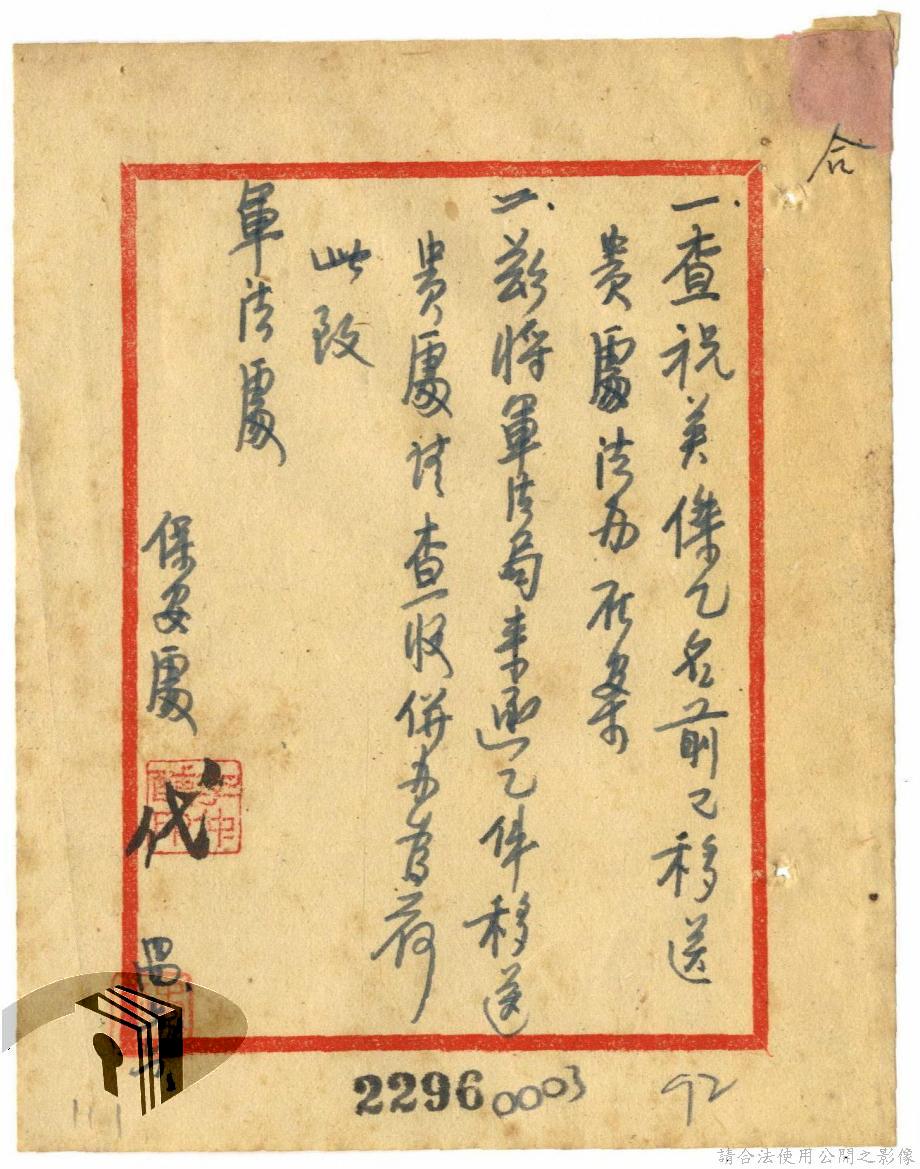 合
一、查祝英傑乙名前已移送
貴處法办在案
二、茲將軍法局来函乙件移送
貴處請查收併办為荷
此致
軍法處
保安處
代
四
2296 0003
92
請合法使用公開之影像